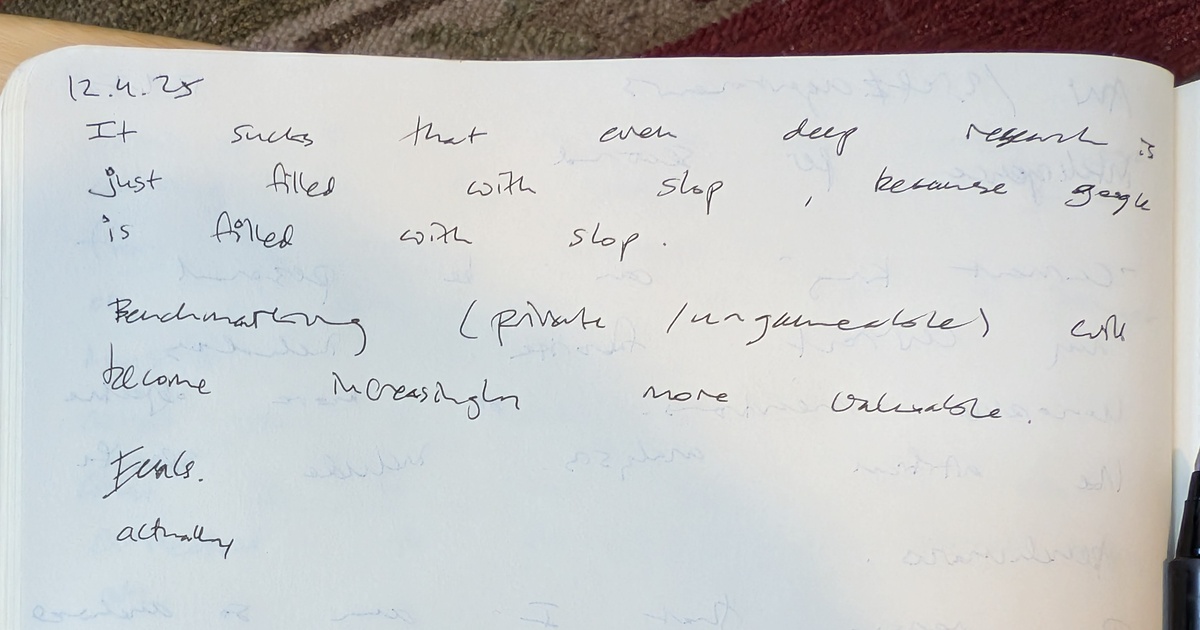 12.4.25
It sucks that even deep research is
just filled with slop, because google
is filled with slop.
Benchmarking (private /ungameable) will
become increasingly more valuable.
Evals.
actually